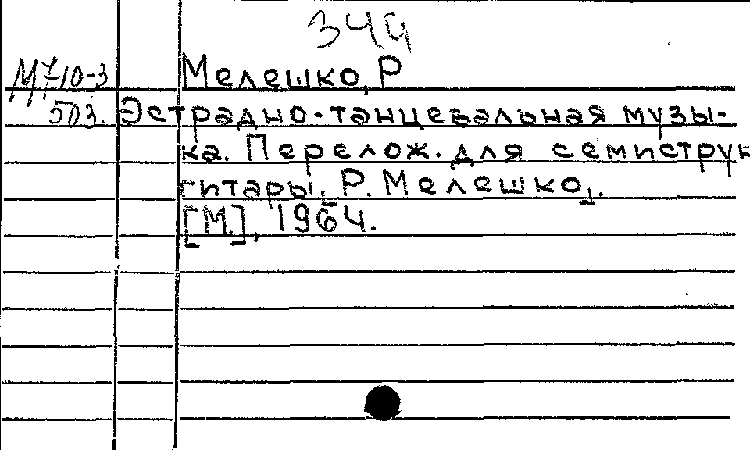 344
М710-3 Мелешко, Р
503. Эстрадно-танцевальная музы-
ка. Перелож. для семиструн
гитары. Р. Мелешко.
[М.], 1964.